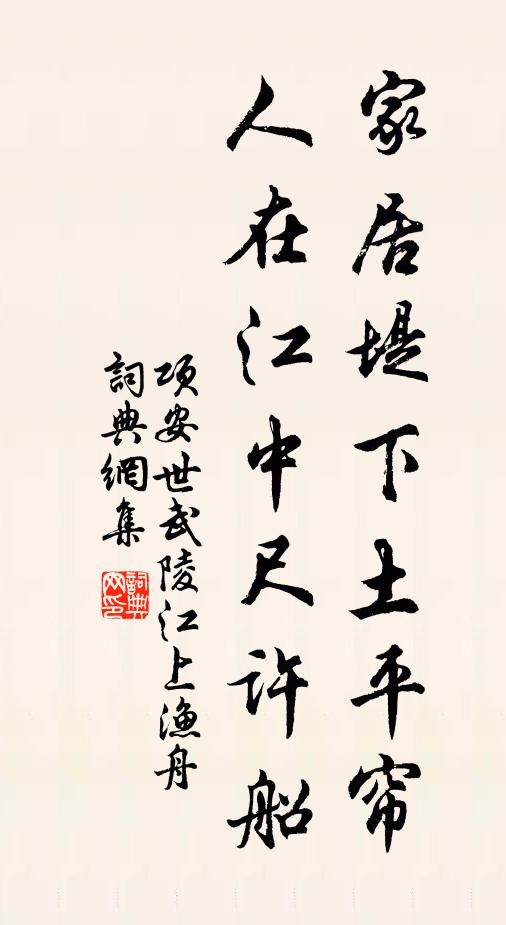 家居堤下土平帘
人在江中尺许船
项安世武陵江上渔舟
詞典網集
詞典网印